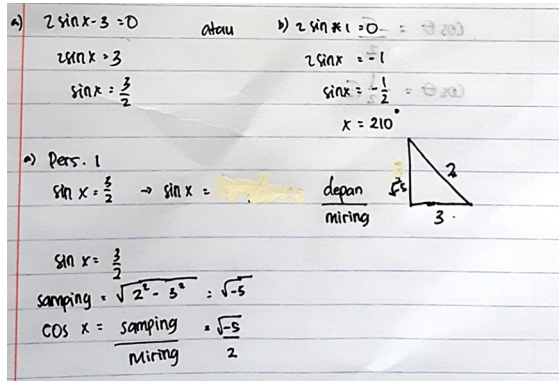 a) 2 sin x - 3 = 0 atau b) 2 sin x 1 = 0
2 sin x = 3 2 sin x = -1
sin x = 3/2 sin x = -1/2
x = 210°
a) Pers. 1
sin x = 3/2 → sin x = depan/miring
2
3
sin x = 3/2
samping = √2² - 3² = √-5
cos x = samping/Miring = √-5/2